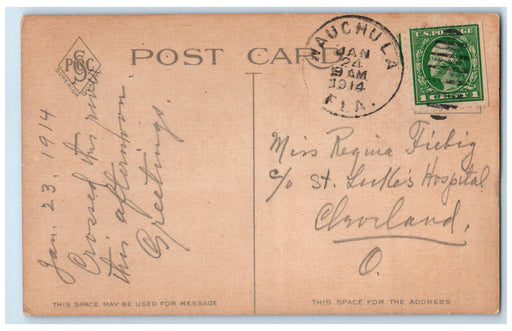 POST CARD
WAUCHULA
JAN
24
9 AM
1914
FLA.
U.S. POSTAGE
1 CENT 1
Jan. 23, 1914
Crossed this river
this afternoon.
Greetings
Miss Regina Fiebig
c/o St. Luke's Hospital
Cleveland,
O.
THIS SPACE MAY BE USED FOR MESSAGE
THIS SPACE IS FOR THE ADDRESS